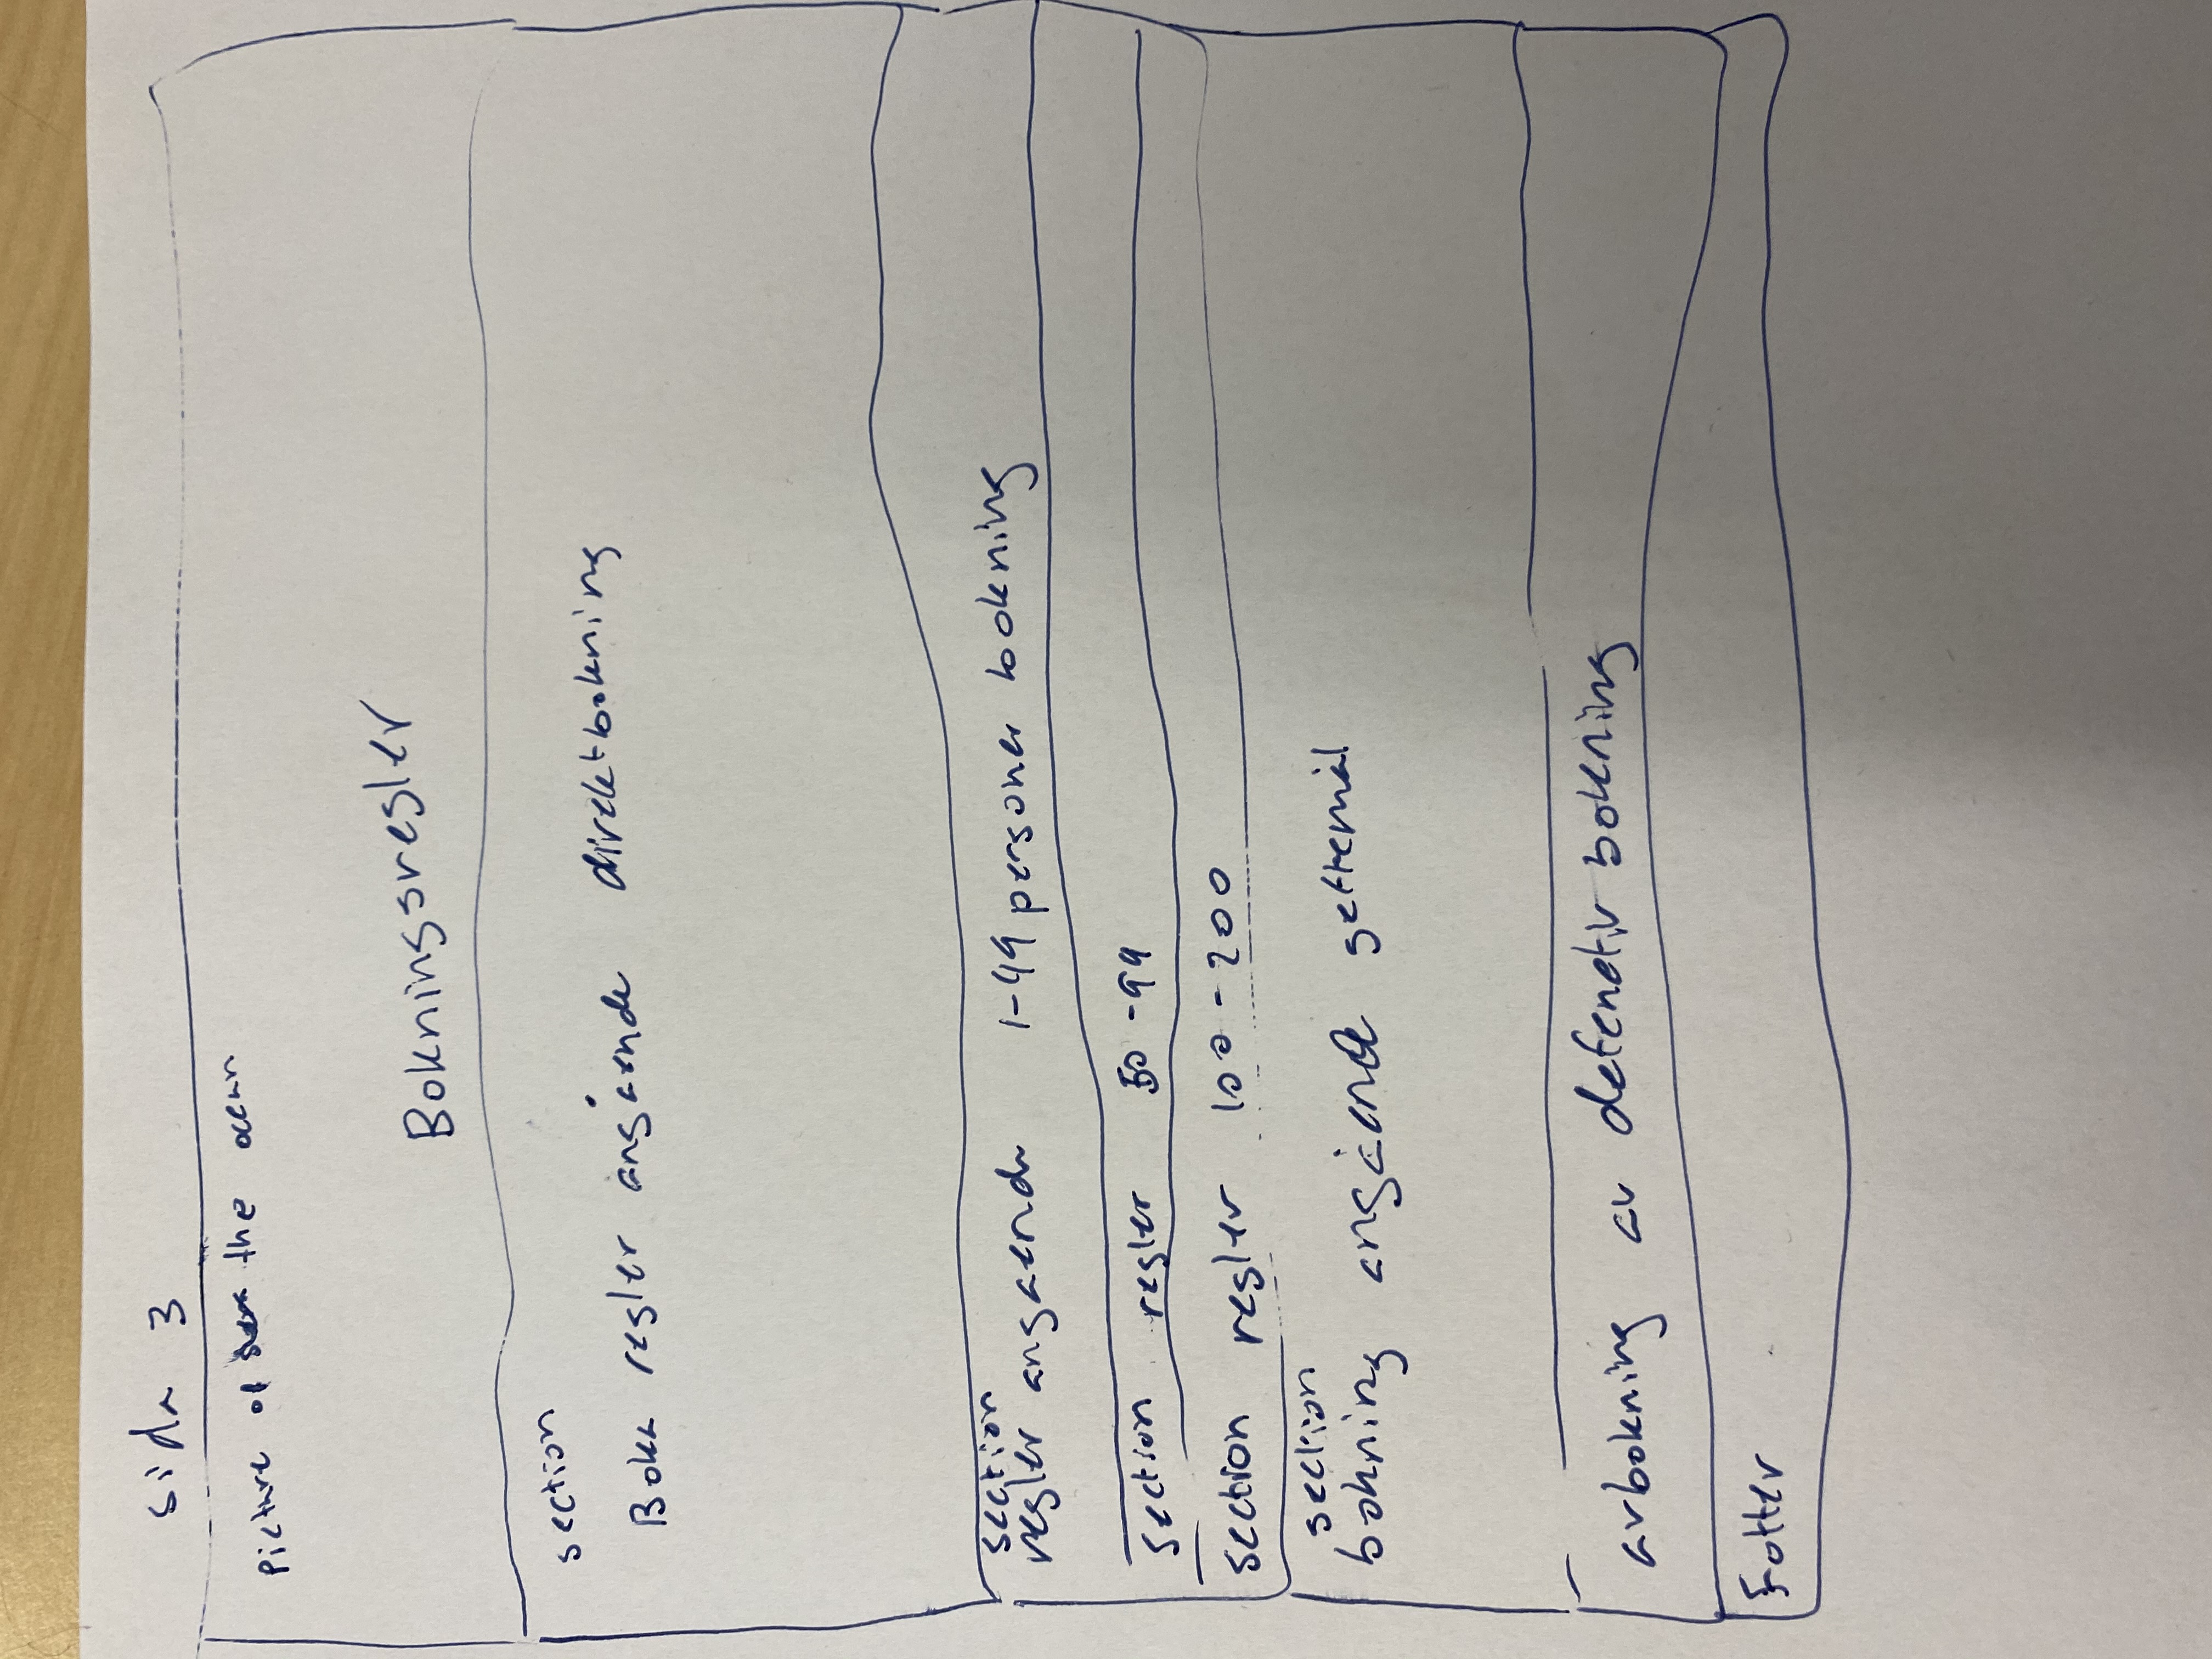 sida 3
Picture of the ocean
Bokningsregler
section
Boka regler angående direktbokning
section
regler angaende 1-49 personer bokning
section regler 50-99
section regler 100-200
section
bokning angående gettemål
avbokning av defenetiv bokning
Fotter